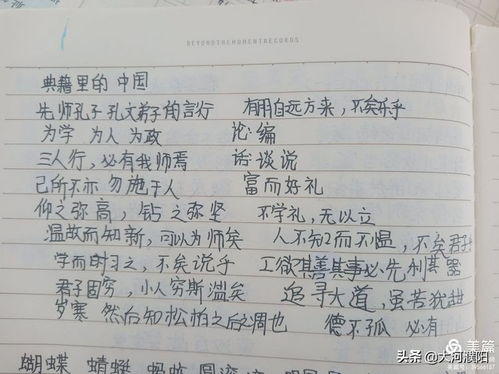 BEYONDTHEMOMENTRECORDS
典籍里的 中国
先师孔子 孔文弟子的言行 有朋自远方来，不矣乐乎
为学 为人 为政 论 编
三人行，必有我师焉 话 谈说
己所不亦 勿施于人 富而好礼
仰之弥高，钻之弥坚 不学礼，无以立
温故而知新，可以为师矣 人不知而不愠，不矣君子
学而时习之，不矣说乎 工欲其善其事必先利其器
君子固穷，小人穷斯滥矣 追寻大道，虽苦犹甜
岁寒 然后知松柏之后之凋也 德不孤 必有
蝴蝶 蜻蜓 蚂蚁 圆滚
头条 @大河濮阳
美篇